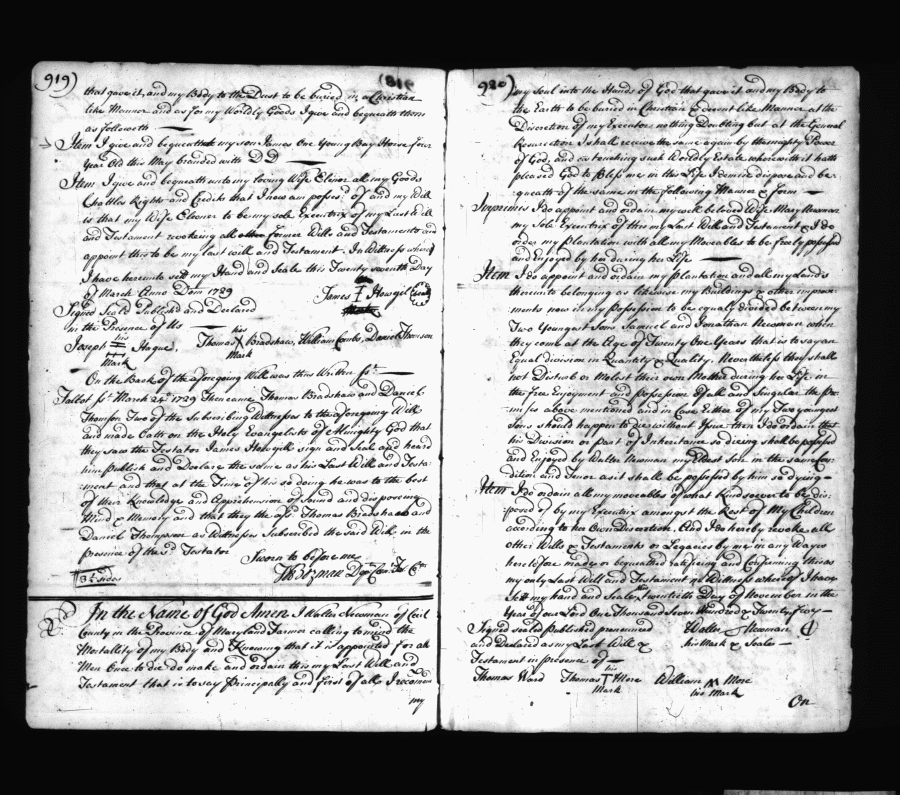 919)
that gave it, and my Body to the Dust to be buried in a Christian
like Manner and as for my Worldly Goods I give and bequeath them
as followeth
Item I give and bequeath my son James One Young Bay Horse four
Year Old this May branded with
Item I give and bequeath unto my loving Wife Elinor all my Goods
Chattles Rights and Credits that I now am possesd. of and my Will
is that my Wife Eleoner to be my sole Executrix of my Last Will
and Testament revokeing all other former Wills and Testaments and
appoint this to be my last will and Testament. In Witness whereof
I have hereunto sett my Hand and Seale this Twenty seventh Day
of March Anno Dom 1729
James I Howgil
Signed Seal'd Publish'd and Declared
in the Presence of Us
his
his
Joseph Hague, Thomas X Bradshaw, William Combs, Daniel Thomson
Mark
Mark
On the Back of the aforegoing Will was thus Written
Talbot ss. March 24th 1729 Then came Thomas Bradshaw and Daniel
Thomson Two of the Subscribing Witnesses to the foregoing Will
and made Oath on the Holy Evangelists of Almighty God that
they saw the Testator James Howgik sign and Seal and heard
him Publish and Declare the same as his Last Will and Testa-
ment and that at the Time of his so doing he was to the best
of their Knowledge and Apprehension of sound and disposeing
Mind & Memory and that they the afd. Thomas Bradshaw and
Daniel Thompson as Witnesses Subscribed the said Will in the
presence of the sd. Testator
Sworn to before me
3½ sides
In the Name of God Amen I Walter Newman of Cecil
County in the Province of Maryland Farmer calling to mind the
Mortallity of my Body and Knowing that it is appointed for all
Men Once to die do make and ordain this my Last Will and
Testament that is to say Principally and first of all I recomend
my
920)
my Soul into the Hands of God that gave it and my Body to
the Earth to be buried in Christian & decent like Manner at the
Discretion of my Executor nothing Doubting but at the General
Resurrection I shall receive the same again by the mighty Power
of God, and as touching such Worldly Estate wherewith it hath
pleased God to Bless me in this Life I demise dispose and be-
queath of the same in the following Manner & form
Imprimis I do appoint and ordain my well beloved Wife Mary Newman
my Sole Executrix of this my Last Will and Testament & I do
order my Plantation with all my Moveables to be freely possessed
and Enjoyed by her during her Life
Item I do appoint and ordain my plantation and all my Lands
thereunto belonging as likewise my Buildings & other improve-
ments now in my Possession to be equally divided between my
Two Youngest Sons Samuel and Jonathan Newman when
they come at the Age of Twenty One Years that is to say an
Equal division in Quantity & Quality. Nevertheless they shall
not Disturb or Molest their own Mother during her Life in
the free Enjoyment and Possession of all and Singular the Pre-
mises above mentioned and in Case Either of my Two youngest
Sons should happen to die without Issue then I do ordain that
his Division or part of Inheritance so dieing shall be possessed
and Enjoyed by Walter Newman my Eldest Son in the same Con-
dition and Tenor as it shall be possessed by him so dying
Item I do ordain all my moveables of what Kind soever to be dis-
posed of by my Executrix amongst the Rest of My Children
according to her Own Discretion. And I do hereby revoke all
other Wills & Testaments or Legacies by me in any Wayes
heretofore made or bequeathed ratifying and Confirming this as
my only Last Will and Testament in Witness whereof I have
Set my hand and Seale Twentieth Day of November in the
Year of our Lord One Thousand Seven Hundred & Twenty five
Signed sealed published pronounced
Walter Newman
and Declared as my Last Will &
his Mark & Seale
Testament in presence of
his
Thomas Ward Thomas T More William M More
Mark
his Mark
On